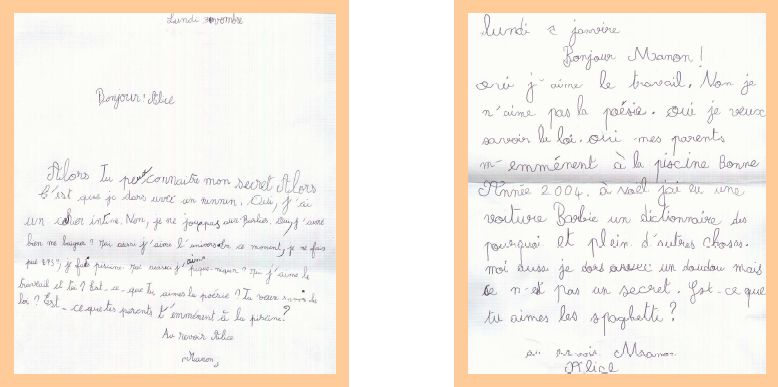 Lundi 3 novembre
Bonjour! Alice
Alors Tu peut connaitre mon secret Alors
C'est que je dors avec un Oui, j'ai
un cahier intime. Non, je ne joue pas aux Barbies. Oui, j'aime
bien me baigner? Moi aussi j'aime ce moment, je ne fais
pas je fais piscine. Moi aussi j'aime pique-niquer? Moi j'aime le
travail et toi? Est-ce que tu aimes la poésie? Tu veux savoir la
loi? Est-ce que tes parents t'emmènent à la piscine?
Au revoir Alice
Manon,
lundi 5 janvire
Bonjour Manon!
oui j'aime le travail. Non je
n'aime pas la poésie. oui je veux
savoir la loi. oui mes parents
m'emménent à la piscine Bonne
Année 2004. à noël j'ai eu une
voiture Barbie un dictionnaire des
pourquoi et plein d'autres choses.
moi aussi je dors avec un doudou mais
ce n'et pas un secret. Est-ce que
tu aimes les spaghetti?
au revoir Manon
Alice